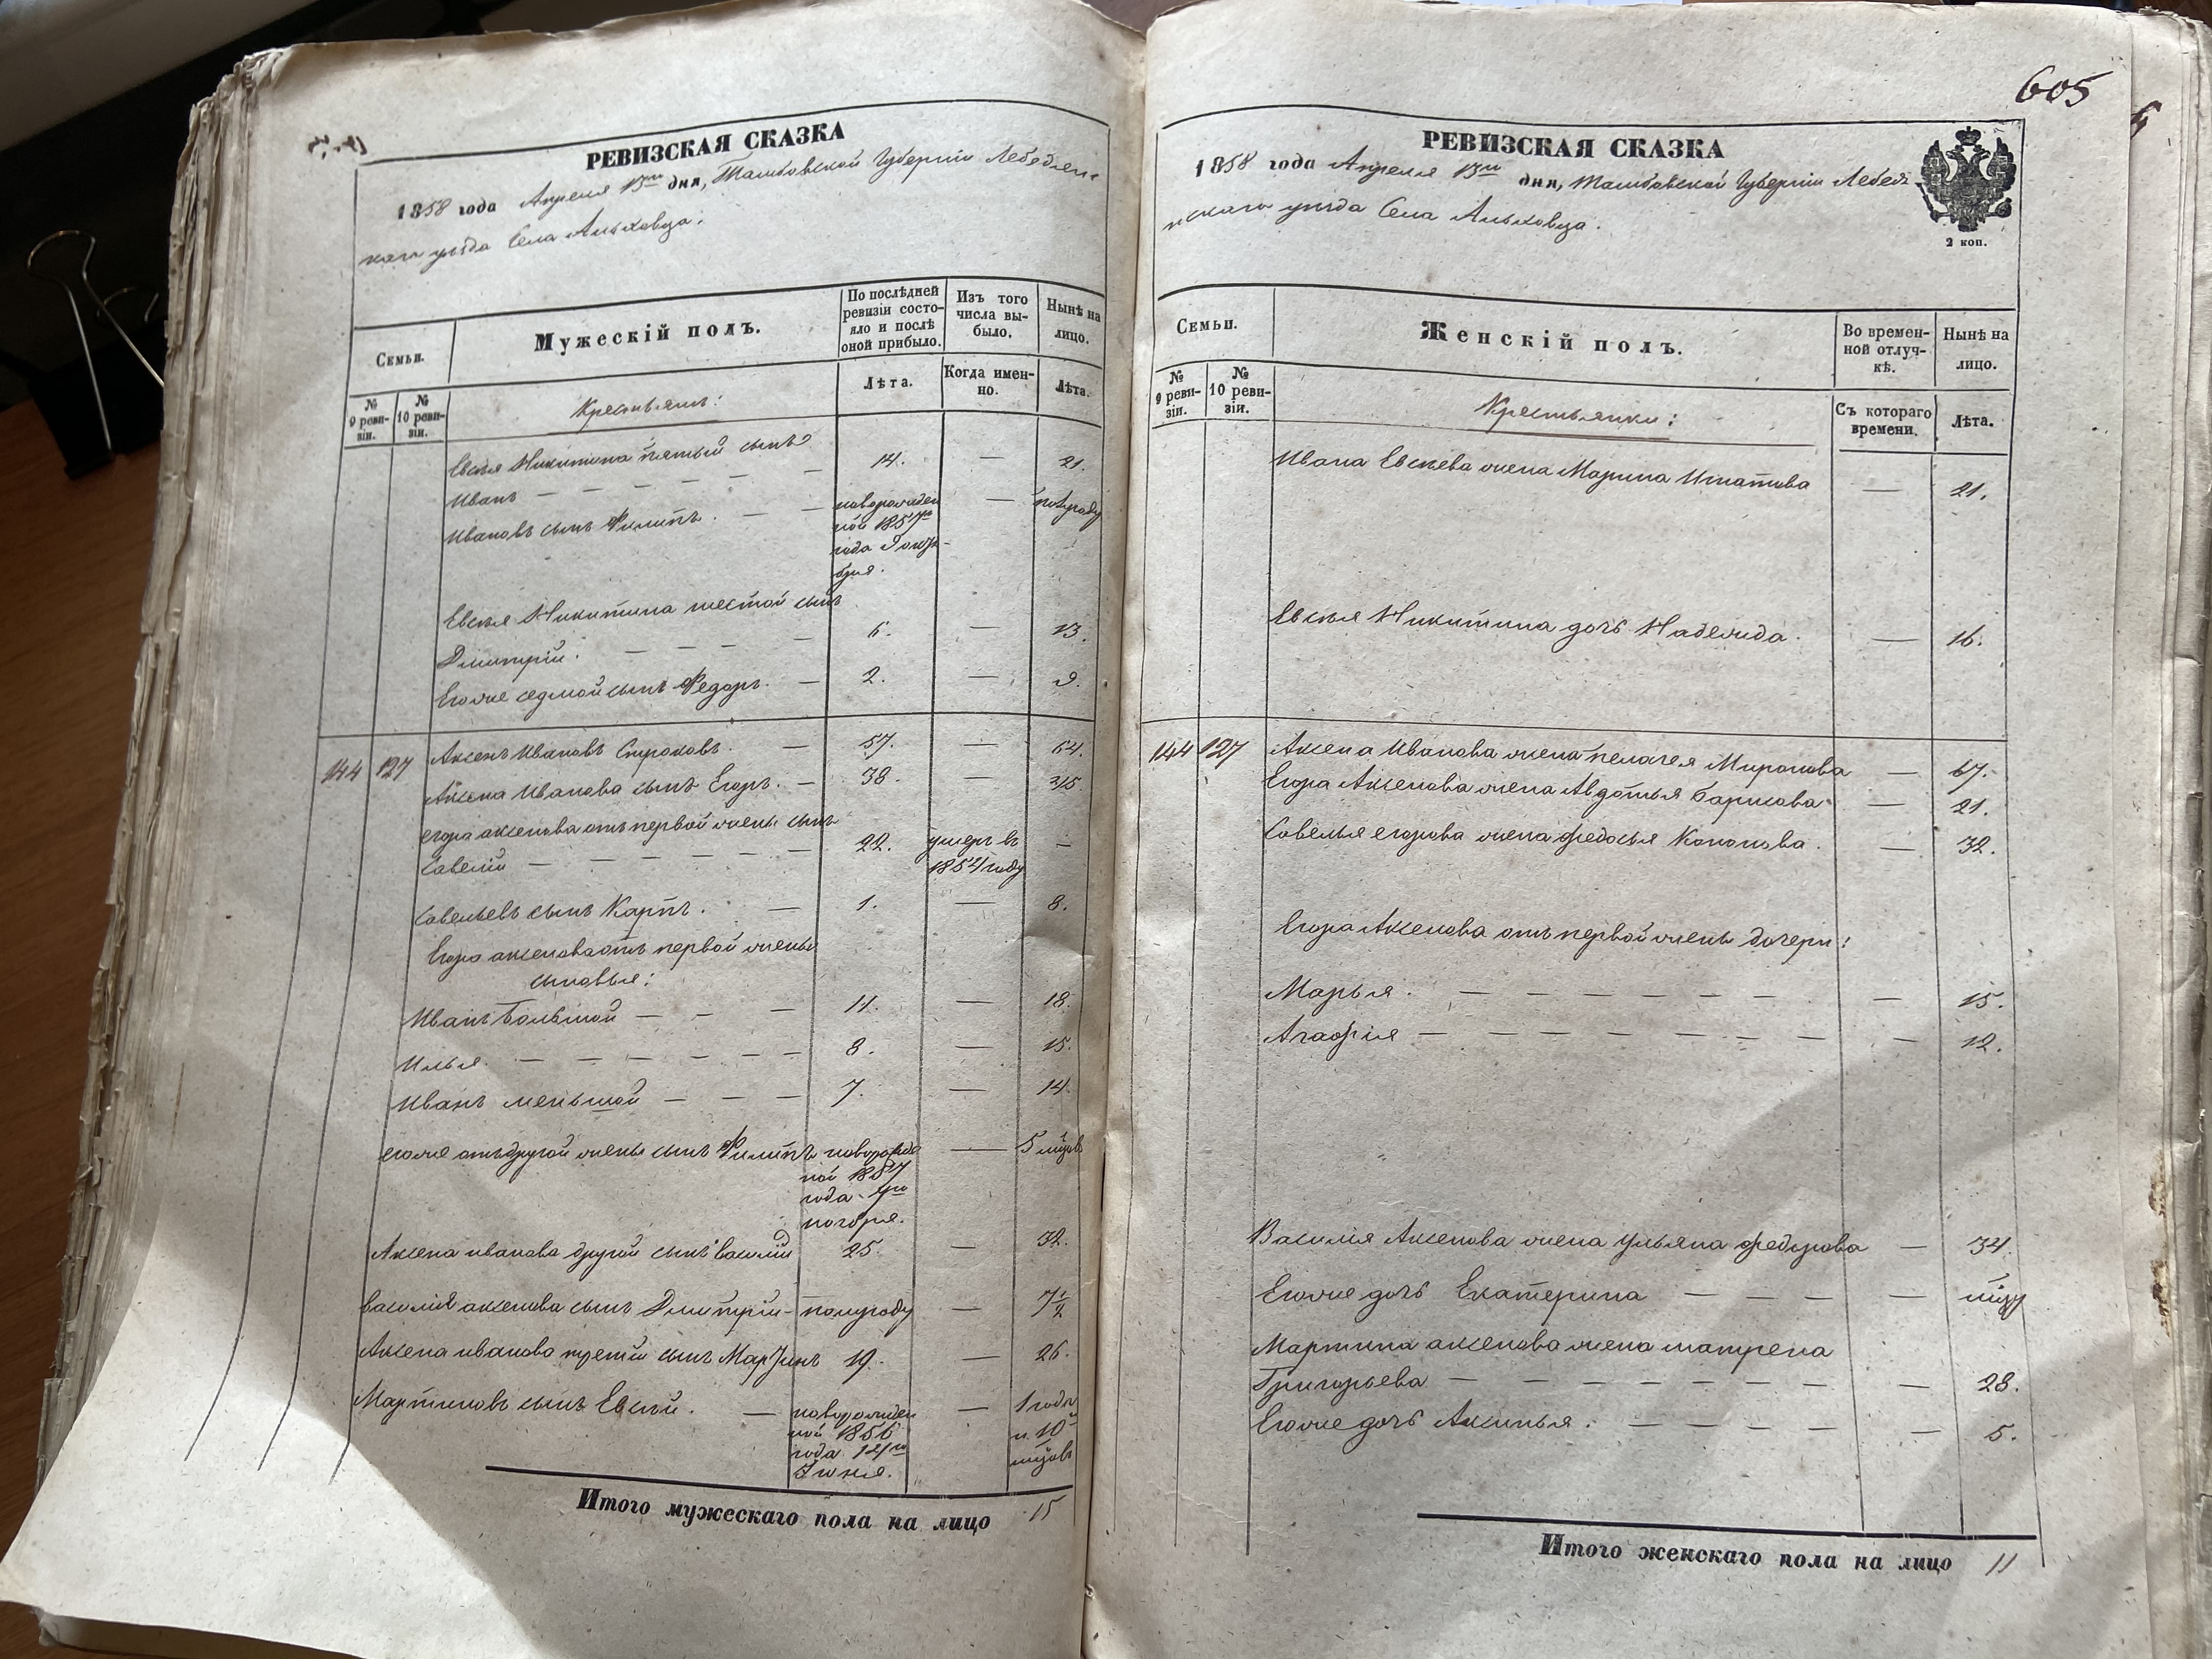 РЕВИЗСКАЯ СКАЗКА
1858 года Апреля 13го дня, Тамбовской Губерніи Лебедянс
каго уѣзда Села
Семьи.
Мужескій полъ.
По послѣдней ревизіи состо-
яло и послѣ оной прибыло.
Изъ того числа вы-
было.
Нынѣ на лицо.
№ 9 реви-
зіи.
№ 10 реви-
зіи.
Лѣта.
Когда имен-
но.
Лѣта.
Крестьяне:
Евсѣя Никитина пятый сынъ
Иванъ — 14. — 21.
Ивановъ сынъ Филипъ. — новорожден — полугоду
ной 1857го
года 9 октя-
бря.
Евсѣя Никитина шестой сынъ
Дмитрій. — 6. — 13.
Егоже седмой сынъ Федоръ. — 2. — 9.
144 127 Аксенъ Ивановъ Строковъ. — 57. — 64.
Аксена Иванова сынъ Егоръ. — 38. — 45.
егора аксенова отъ первой жены сынъ
Савелій — 22. умеръ въ —
1854 году
Савельевъ сынъ Карпъ. — 1. — 8.
Егора аксенова отъ первой жены
сыновья:
Иванъ большой — 11. — 18.
Илья. — 8. — 15.
Иванъ меньшой — 7. — 14.
егоже отъ другой жены сынъ Филипъ новорожде — 5 мцовъ
ной 1857
года 7го
ноября.
Аксена иванова другой сынъ василій 25. — 32.
василія аксенова сынъ Дмитрій — полугоду — 7½
Аксена иванова третій сынъ Мартинъ 19. — 26.
Мартиновъ сынъ Евсѣй. — новорожден — 1 года
ной 1856 и 10
года 14го мцовъ
Іюня.
Итого мужескаго пола на лицо 15
605
РЕВИЗСКАЯ СКАЗКА
1858 года Апреля 13го дня, Тамбовской Губерніи Лебедя
нскаго уѣзда Села
2 коп.
Семьи.
Женскій полъ.
Во времен-
ной отлуч-
кѣ.
Нынѣ на лицо.
№ 9 реви-
зіи.
№ 10 реви-
зіи.
Съ котораго времени.
Лѣта.
Крестьянки:
Ивана Евсѣева жена Марина Игнатова — 21.
Евсѣя Никитина дочь Надежда. — 16.
144 127 Аксена Иванова жена пелагея Миронова — 67.
Егора Аксенова жена Авдотья Борисова — 21.
Савелья егорова жена федосья Кононова. — 32.
Егора Аксенова отъ первой жены дочери:
Марья. — 15.
Агафія — 12.
Василія Аксенова жена ульяна федорова — 34.
Егоже дочь Екатерина —
Мартина аксенова жена матрена
Григорьева — 28.
Егоже дочь Аксинья. — 5.
Итого женскаго пола на лицо 11